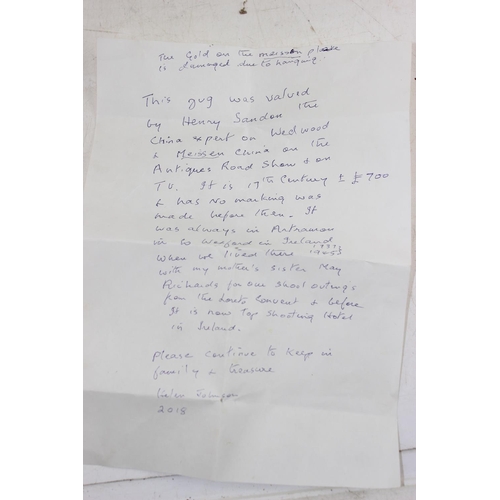 The Gold on the meissen plate
is damaged due to hanging.
This jug was valued
by Henry Sandon the
China expert on Wedwood
& Meissen China on the
Antiques Road Show & on
TV. It is 17th Century ± £700
& has no marking was
made before then. It
was always in Artramon
in Co Wexford in Ireland
when we lived there
with my mother's sister May
Richards for our shool outings
from the Loreto Convent & before
It is now Top Shooting Hotel
in Ireland.
Please continue to keep in
family & treasure
Helen Johnson
2018